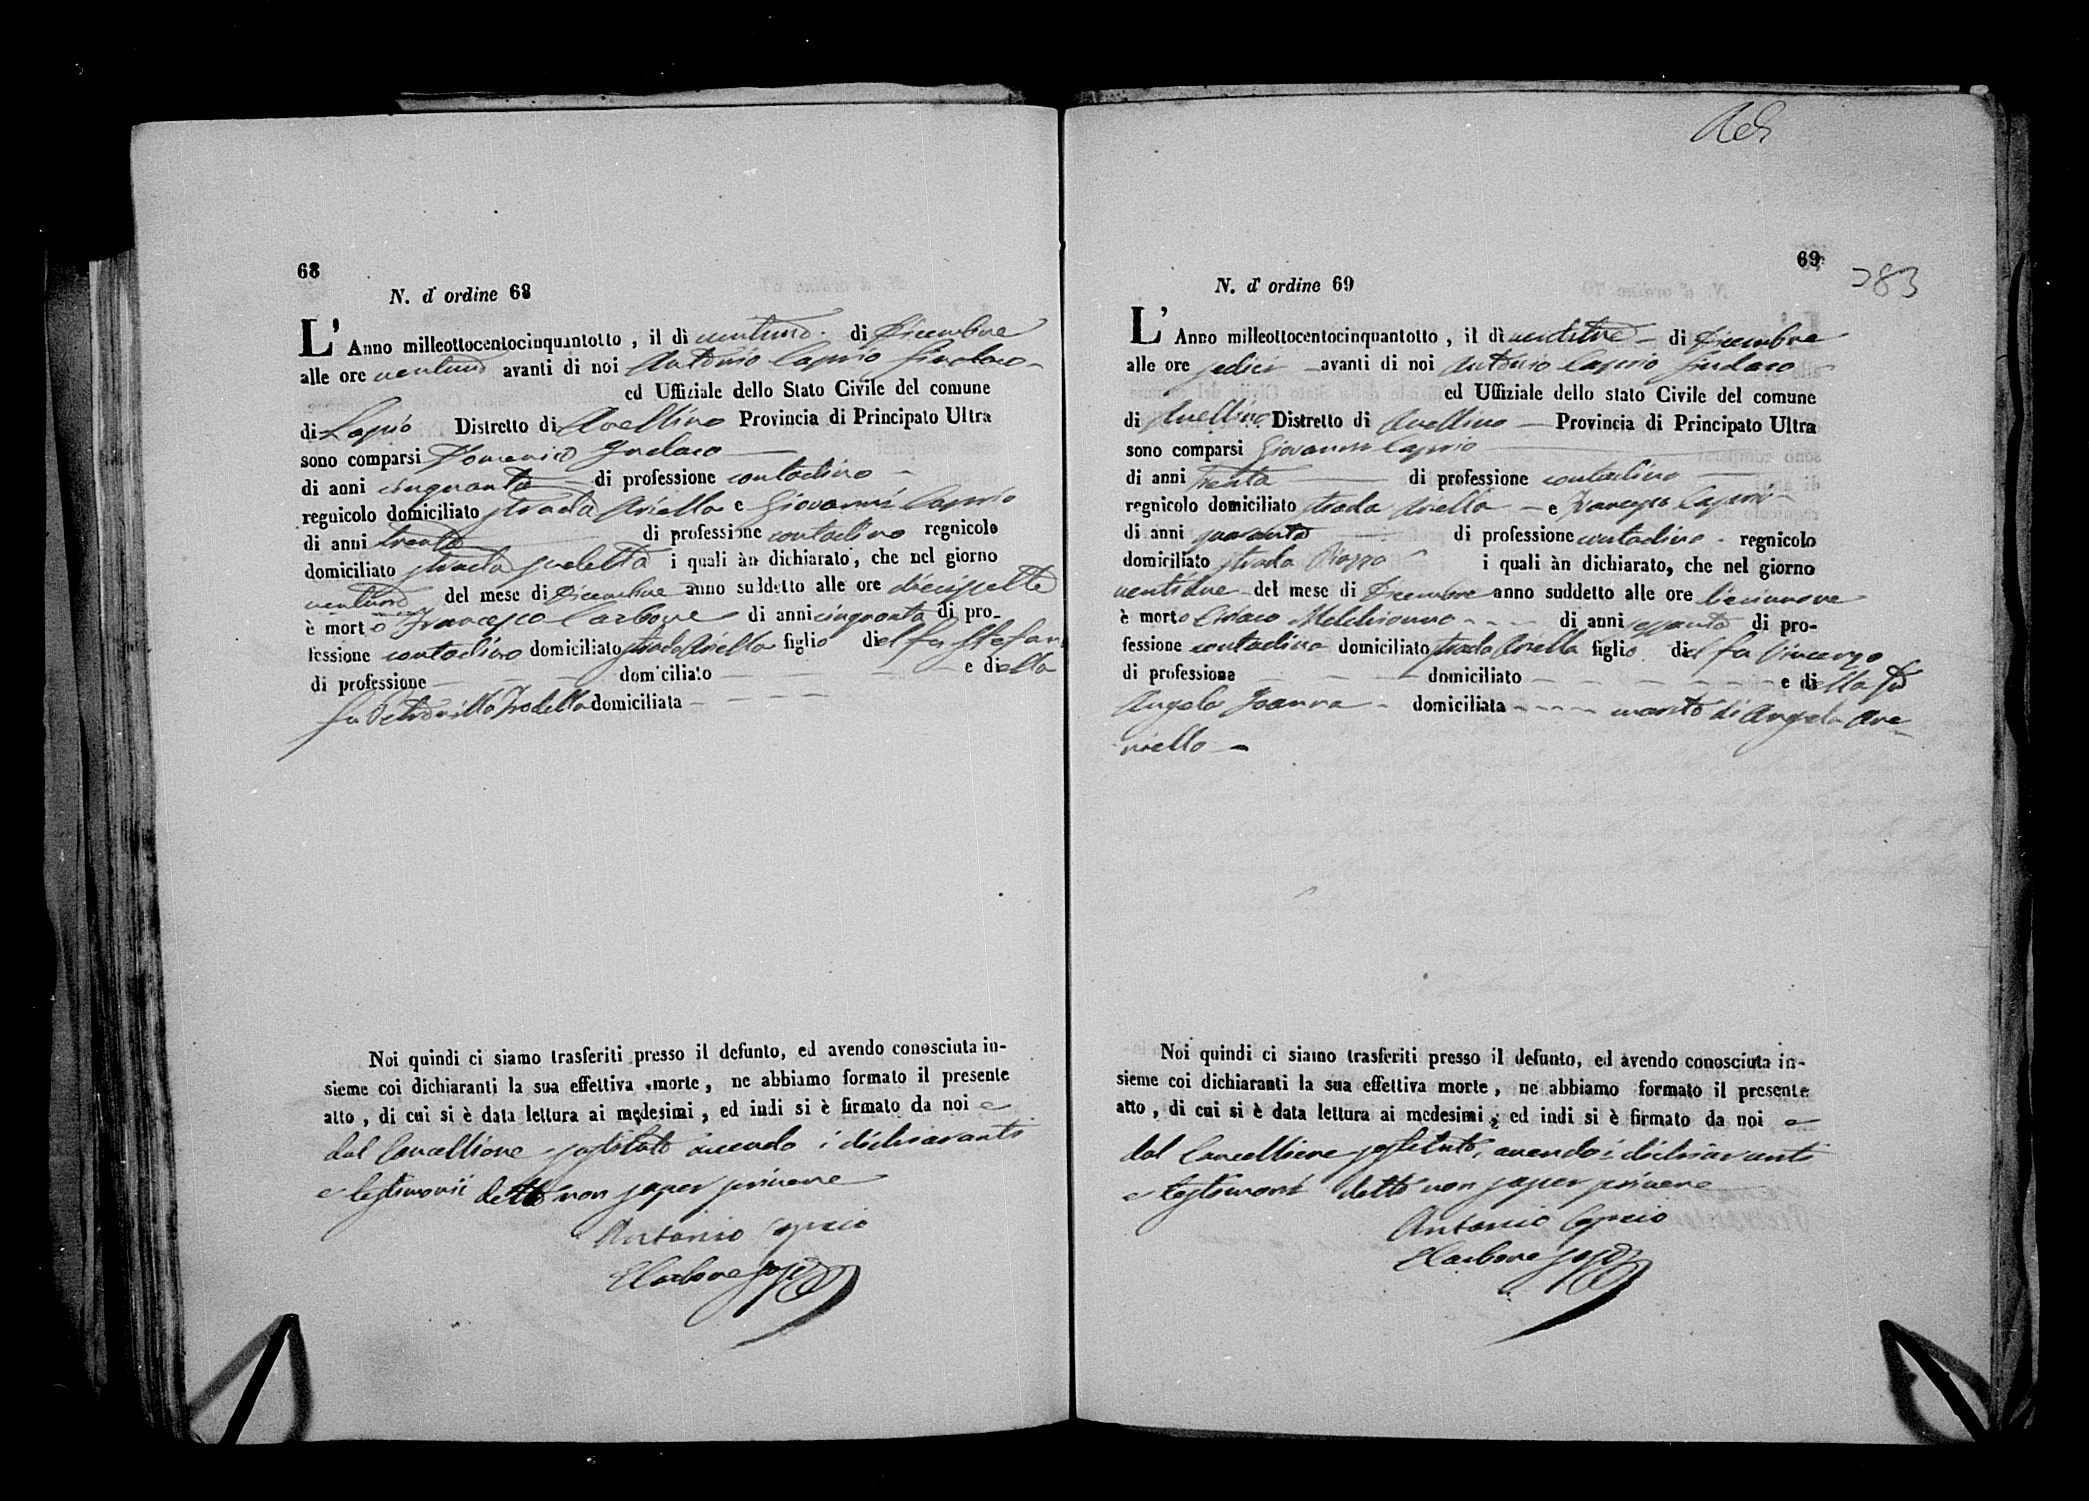 68
N. d' ordine 68
L' Anno milleottocentocinquantotto, il dì ventuno di Dicembre
alle ore ventuno avanti di noi Antonio Caprio Sindaco
ed Uffiziale dello Stato Civile del comune
di Lapio Distretto di Avellino Provincia di Principato Ultra
sono comparsi Domenico
di anni cinquanta di professione contadino
regnicolo domiciliato strada Ariella e Giovanni Caprio
di anni trenta di professione contadino regnicolo
domiciliato strada i quali àn dichiarato, che nel giorno
ventuno del mese di Dicembre anno suddetto alle ore diecisette
è morto Francesco Carbone di anni cinquanta di pro-
fessione contadino domiciliato strada Ariella figlio del fu Stefano
di professione domiciliato e della
fu Petronilla domiciliata
Noi quindi ci siamo trasferiti presso il defunto, ed avendo conosciuta in-
sieme coi dichiaranti la sua effettiva morte, ne abbiamo formato il presente
atto, di cui si è data lettura ai medesimi, ed indi si è firmato da noi e
dal Cancelliere sostituto avendo i dichiaranti
e testimonii detto non saper scrivere
Antonio Caprio
Carbone
69
283
N. d' ordine 69
L' Anno milleottocentocinquantotto, il dì ventitre di Dicembre
alle ore sedici avanti di noi Antonio Caprio Sindaco
ed Uffiziale dello stato Civile del comune
di Avellino Distretto di Avellino Provincia di Principato Ultra
sono comparsi Giovanni Caprio
di anni trenta di professione contadino
regnicolo domiciliato strada Ariella e Francesco Caprio
di anni quaranta di professione contadino regnicolo
domiciliato strada Piazza i quali àn dichiarato, che nel giorno
ventidue del mese di Dicembre anno suddetto alle ore diecinnove
è morto Ciriaco Melchionna di anni sessanta di pro-
fessione contadino domiciliato strada Ariella figlio del fu Vincenzo
di professione domiciliato e della fu
Angela Joanna domiciliata marito di Angela
Noi quindi ci siamo trasferiti presso il defunto, ed avendo conosciuta in-
sieme coi dichiaranti la sua effettiva morte, ne abbiamo formato il presente
atto, di cui si è data lettura ai medesimi, ed indi si è firmato da noi e
dal Cancelliere sostituto, avendo i dichiaranti
e testimoni detto non saper scrivere
Antonio Caprio
Carbone